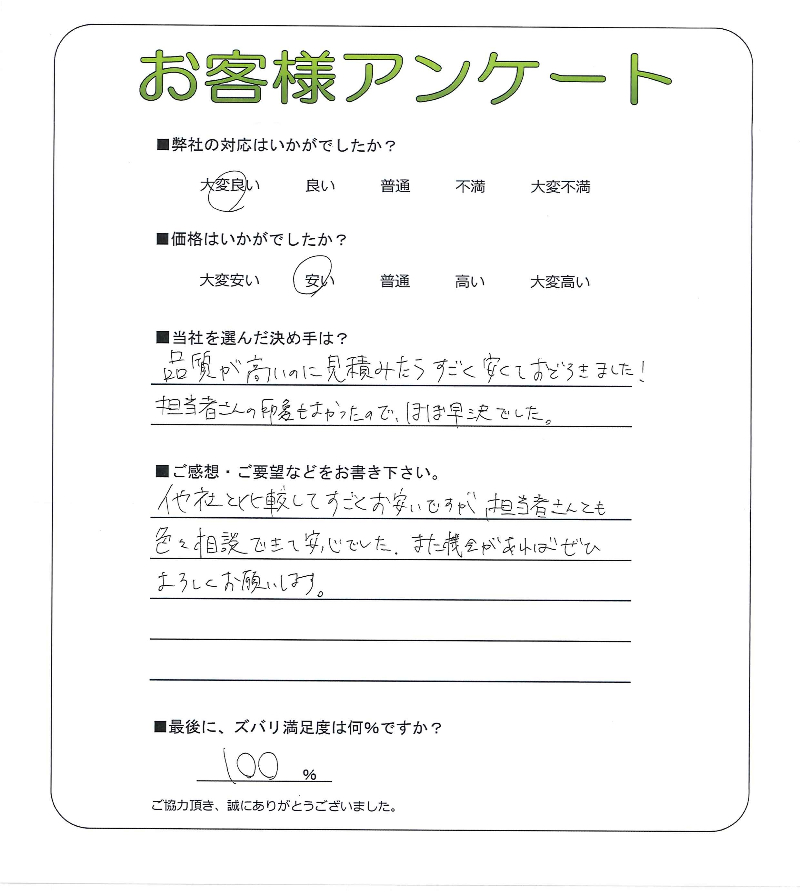 お客様アンケート
■弊社の対応はいかがでしたか？
大変良い 良い 普通 不満 大変不満
■価格はいかがでしたか？
大変安い 安い 普通 高い 大変高い
■当社を選んだ決め手は？
品質が高いのに見積みたらすごく安くておどろきました！
担当者さんの印象もよかったので、ほぼ即決でした。
■ご感想・ご要望などをお書き下さい。
他社と比較してすごくお安いですが担当者さんとも
色々相談できて安心でした。また機会があればぜひ
よろしくお願いします。
■最後に、ズバリ満足度は何％ですか？
100 ％
ご協力頂き、誠にありがとうございました。